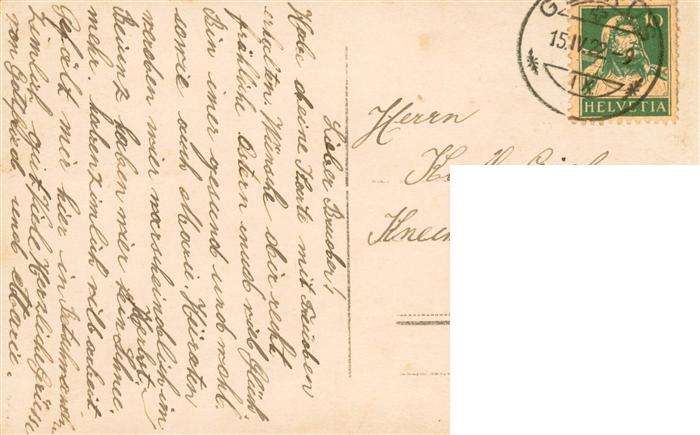 Lieber Bruder!
Habe deine Karte mit Freuden
erhalten. Wünsche dier recht
fröhliche Ostern und viel Glück
Bin imer gesund und wohl.
sowie auch Marie. Hüraten
werden mier warscheindlich im
Herbst.
Beienz haben mier ken Schnee.
mehr. haben zimlich vill arbeit
Gefält mir hier in
zimlich gut. Viele Herzliche Grüsse
von Gottfried und Marie.
Herrn
15.IV.
9
IX
10
HELVETIA